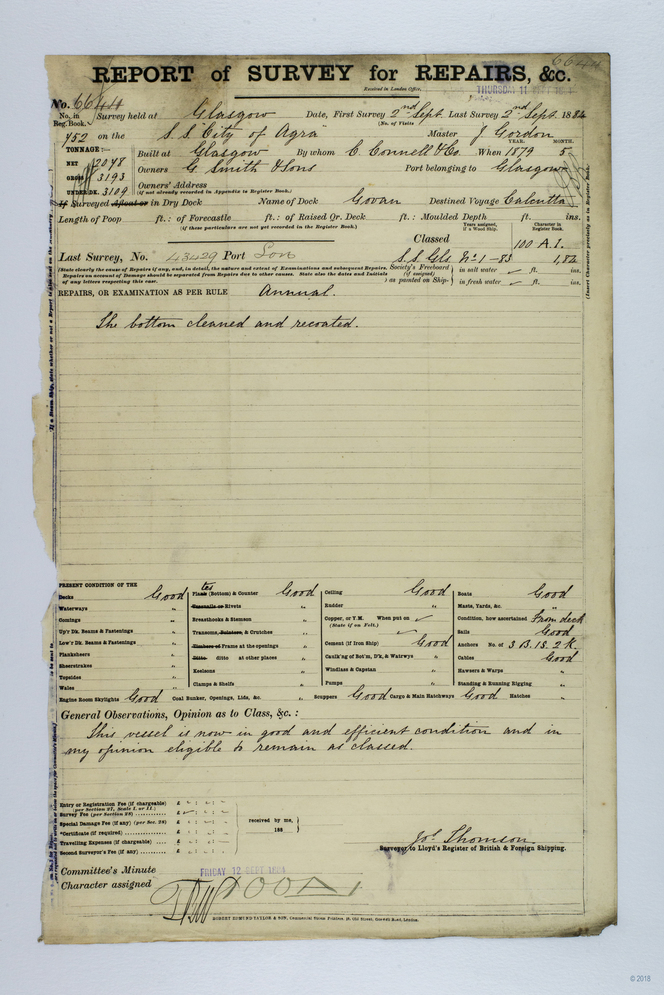 6644
REPORT of SURVEY for REPAIRS, &c.
Received in London Office,
THURSDAY 11 SEPT 1884
No. 6644
No. in Reg. Book. Survey held at Glasgow Date, First Survey 2nd Sept. Last Survey 2nd Sept. 1884
(No. of Visits )
752 on the S.S. "City of Agra" Master J. Gordon
TONNAGE:— YEAR. MONTH.
NET 2048 Built at Glasgow By whom C. Connell & Co. When 1879 5
GROSS 3193 Owners G. Smith & Sons Port belonging to Glasgow
UNDER DK. 3109 Owners' Address
(if not already recorded in Appendix to Register Book.)
If Surveyed afloat or in Dry Dock Name of Dock Govan Destined Voyage Calcutta
Length of Poop ft.: of Forecastle ft.: of Raised Qr. Deck ft.: Moulded Depth ft. ins.
(if these particulars are not yet recorded in the Register Book.)
Years assigned, if a Wood Ship. Character in Register Book.
Classed 100 A.1.
Last Survey, No. 43429 Port Lon S.S. Gls No. 1-83 1,84
(State clearly the cause of Repairs if any, and, in detail, the nature and extent of Examinations and subsequent Repairs.
Repairs on account of Damage should be separated from Repairs due to other causes. State also the dates and Initials
of any letters respecting this case.
Society's Freeboard (if assigned) as painted on Ship- in salt water ft. ins.
in fresh water ft. ins.
REPAIRS, OR EXAMINATION AS PER RULE Annual.
The bottom cleaned and recoated.
PRESENT CONDITION OF THE
Decks Good Plates (Bottom) & Counter Good Ceiling Good Boats Good
Waterways " Treenails or Rivets " Rudder " Masts, Yards, &c. "
Comings " Breasthooks & Stemson " Copper, or Y.M. When put on Condition, how ascertained From deck
(State if on Felt.)
Up'r Dk. Beams & Fastenings " Transoms, Pointers, & Crutches " Sails Good
Low'r Dk. Beams & Fastenings " Timbers or Frame at the openings " Cement (if Iron Ship) Good Anchors No. of 3 B. 1 S. 2 K.
Planksheers " Ditto ditto at other places " Caulk'ng of Bot'm, D'k, & Watrwys " Cables Good
Sheerstrakes " Keelsons " Windlass & Capstan " Hawsers & Warps "
Topsides " Clamps & Shelfs " Pumps " Standing & Running Rigging "
Wales "
Engine Room Skylights Good Coal Bunker, Openings, Lids, &c. " Scuppers Good Cargo & Main Hatchways Good Hatches "
General Observations, Opinion as to Class, &c.:
This vessel is now in good and efficient condition and in
my opinion eligible to remain as classed.
Entry or Registration Fee (if chargeable) £
(per Section 27, Scale I. or II.)
Survey Fee (per Section 28) £
Special Damage Fee (if any) (per Sec. 28) £
*Certificate (if required) £
Travelling Expenses (if chargeable) £
Second Surveyor's Fee (if any) £
received by me,
188
Jos. Thomson
Surveyor to Lloyd's Register of British & Foreign Shipping.
Committee's Minute FRIDAY 12 SEPT 1884
Character assigned 100A1
ROBERT EDMUND TAYLOR & SON, Commercial Steam Printers, 19, Old Street, Goswell Road, London.
© 2018